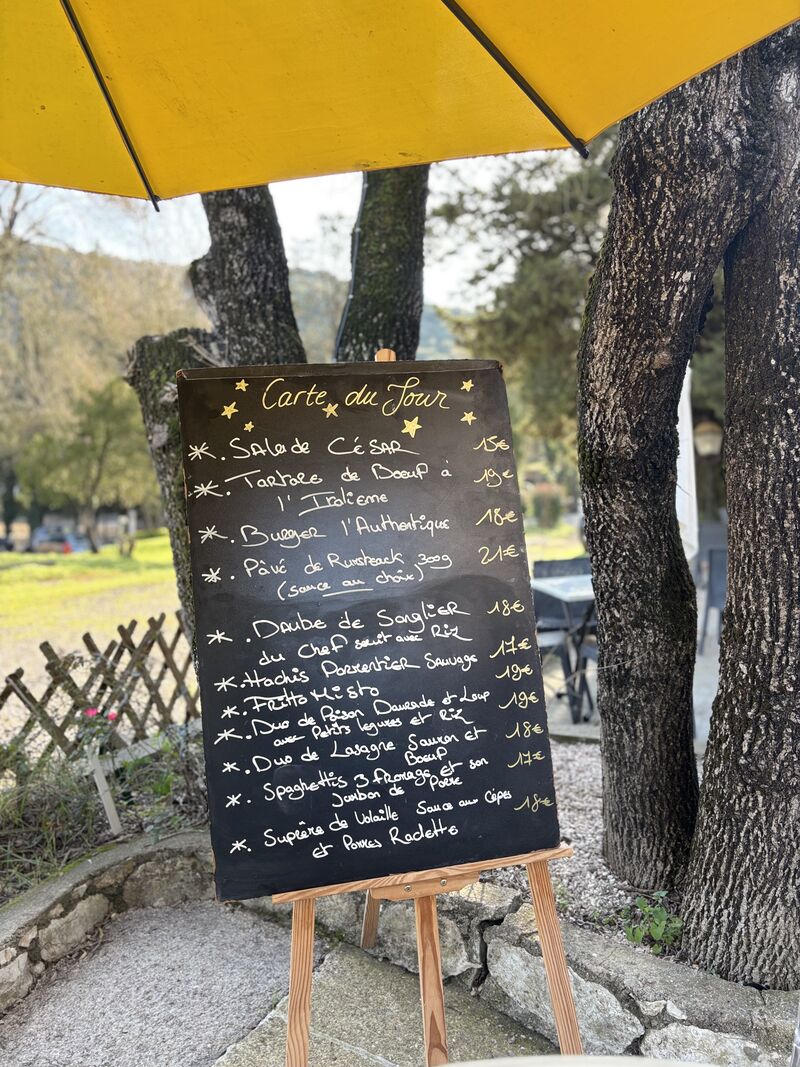 Carte du Jour
*. Salade César 15€
*. Tartare de Boeuf à 19€
l'Italienne
*. Burger l'Authentique 18€
*. Pâvé de Rumsteack 300g 21€
(sauce au choix)
*. Daube de Sanglier 18€
du Chef servit avec Riz
*. Hachis Parrentier Sauvage 17€
*. Fritto Misto 19€
*. Duo de Poison Daurade et Loup 19€
avec Petits legumes et Riz
*. Duo de Lasagne Saumon et 18€
Boeuf
*. Spaghettis 3 fromage et son 17€
Jambon de Parme
*. Suprême de Volaille Sauce aux Cèpes 18€
et Pommes Raclette